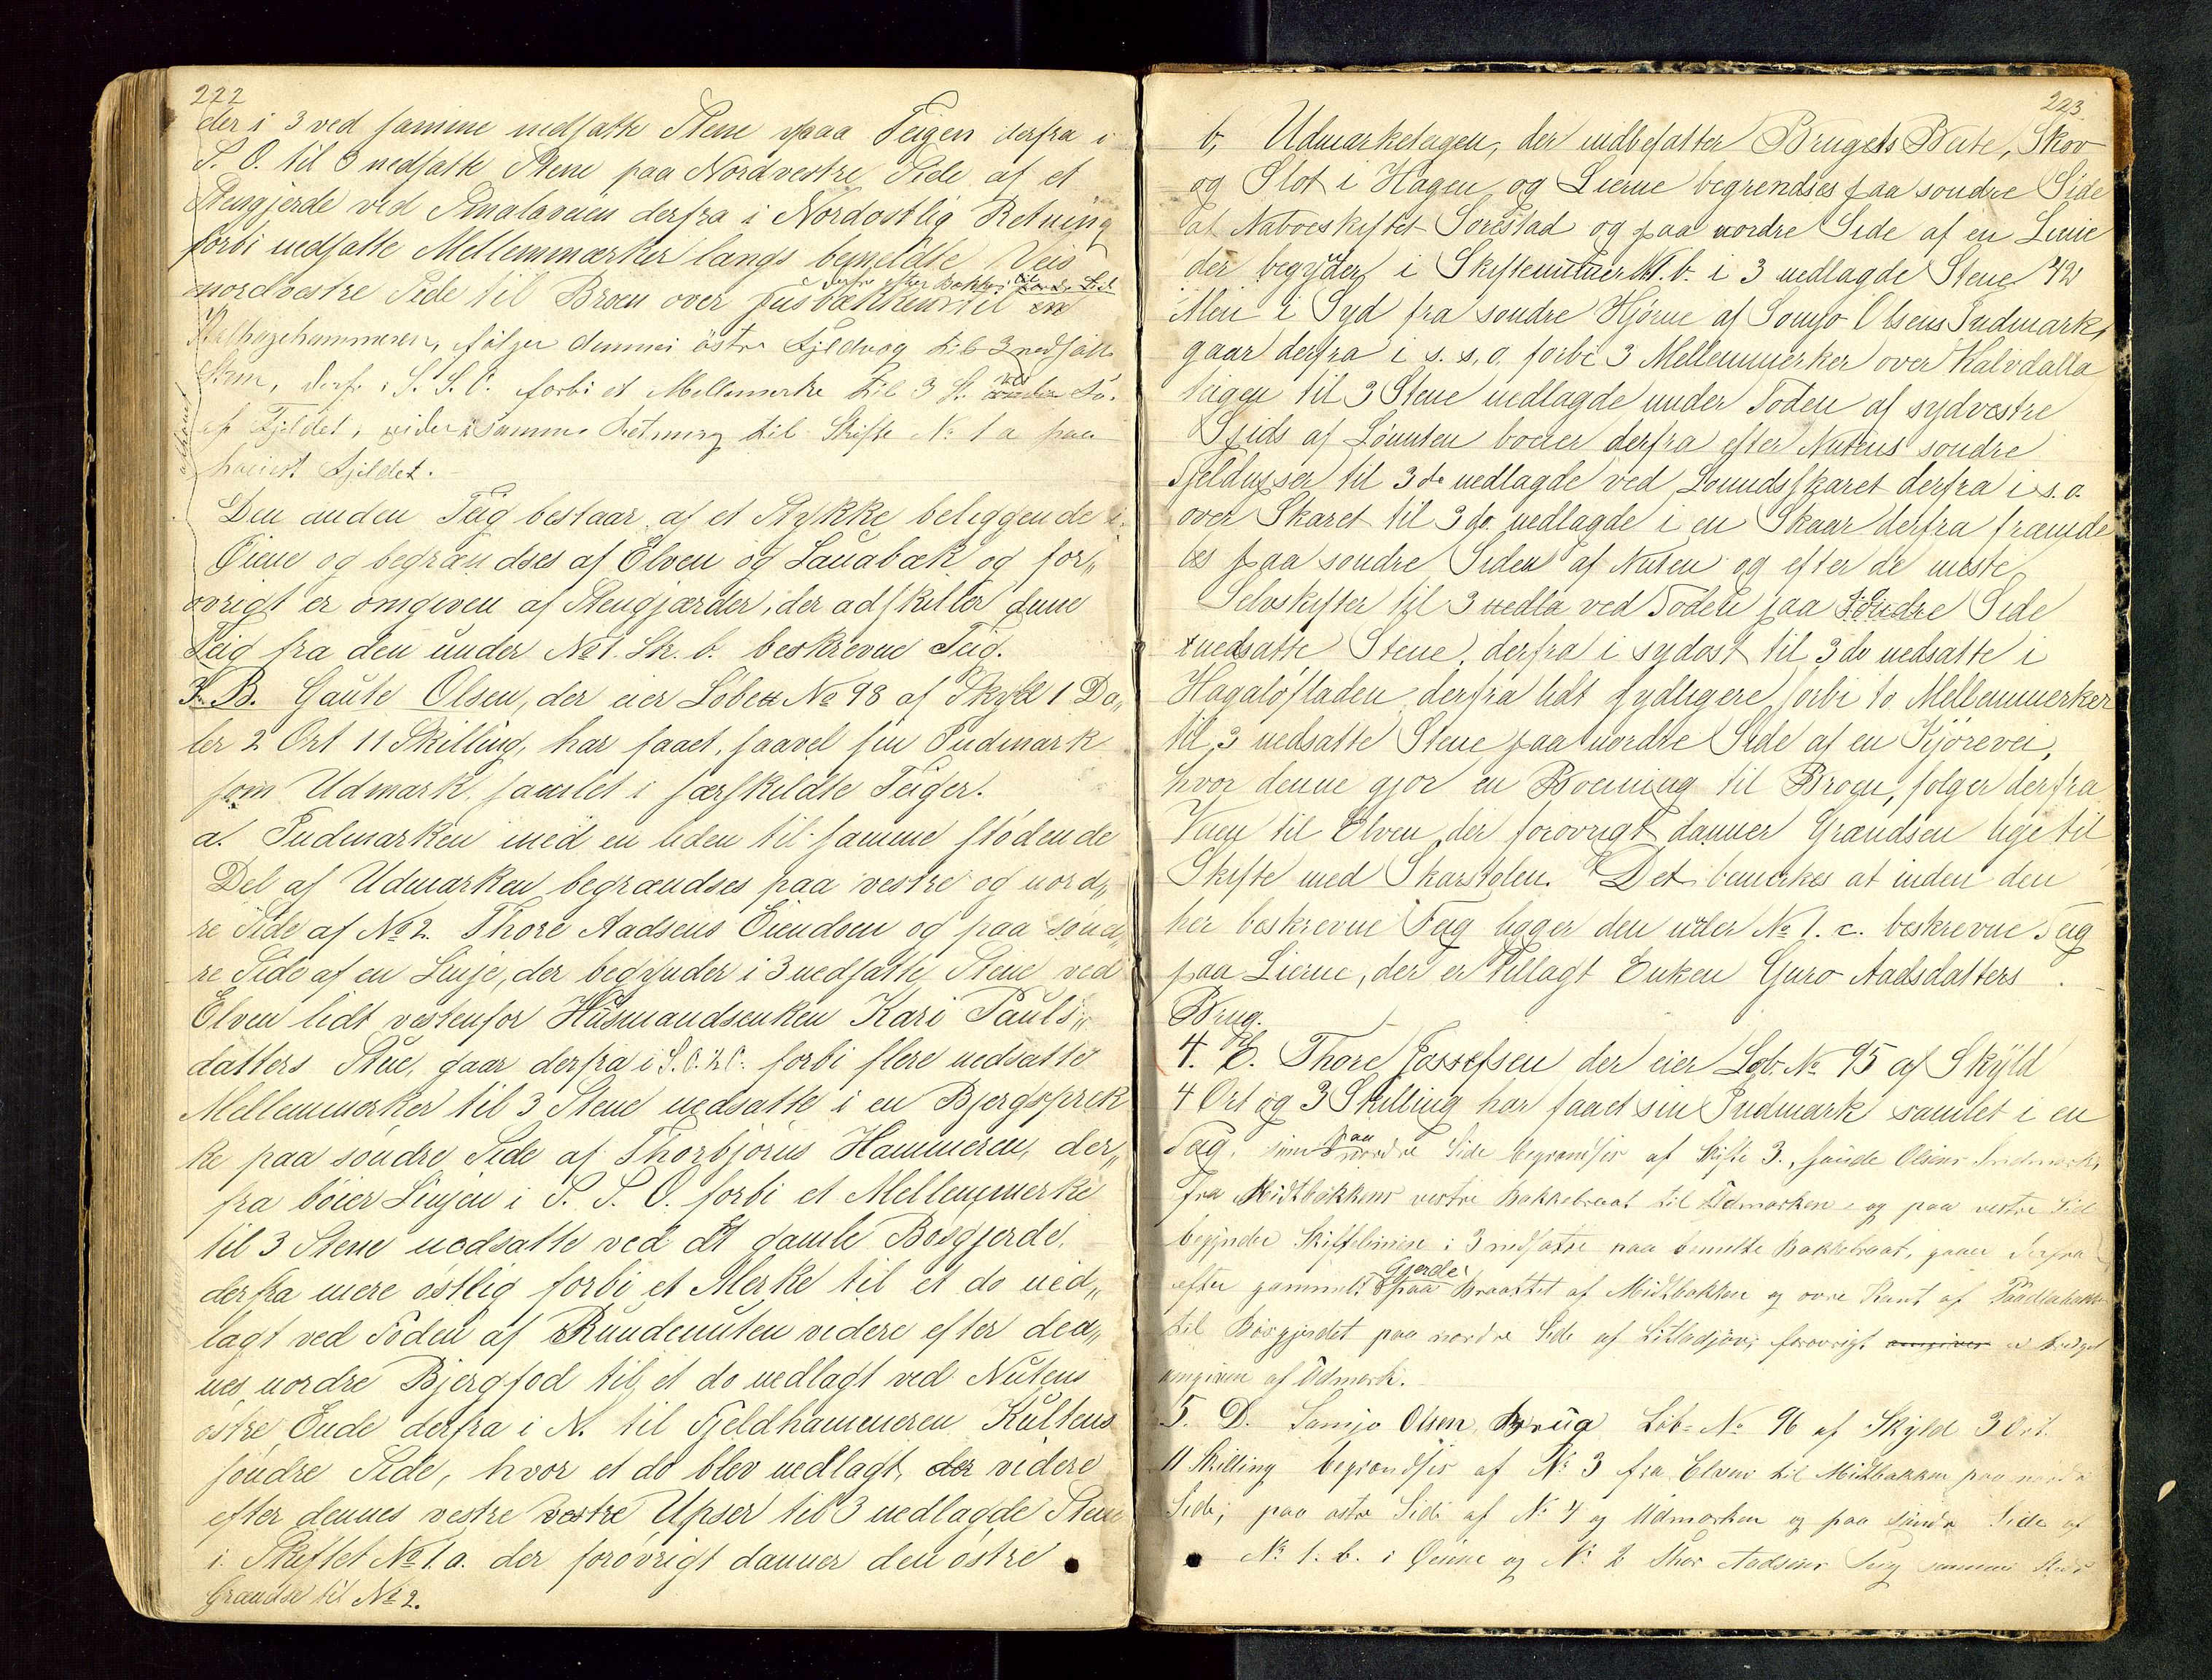 222
der i 3 ved samme nedsatte Stene paa Teigen derfra i
S. O. til 3 nedsatte Stene paa Nordvestre Side af et
Stengjerde ved Smalaveien derfra i Nordostlig Retning
forbi nedsatte Mellemmærker langs bemeldte Veis
nordvestre Side til Broen over til en
følger dennes østre til 3 nedsatte
Stene, derfra i S. S. O. forbi et Mellemerke til 3 St. ved Fo-
af Fjeldet, videre i samme Retning til Skifte No 1 a paa
høieste Fjeldet.
Den anden Teig bestaar af et Stykke beliggende i
Øiene og begrændses af Elven og Lauabæk og for„
øvrigt er omgiven af Stengjærder, der adskiller dene
Teig fra den under No 1. Str. b. beskrevne Teig.
3. B. Gaute Olsen, der eier Løbe No 98 af Skyld 1 Da„
ler 2 Ort 11 Skilling, har faaet, saavel sin Indmark
som Udmark samlet i særskildte Teiger.
a. Indmarken med en liden til samme stødende
Del af Udmarken begrændses paa vestre og nord„
re Side af No 2. Thore Aadsens Eiendom og paa sønd„
re Side af en Linje, der begynder i 3 nedsatte Stene ved
Elven lidt vestenfor Husmandsenken Kari Pauls„
datters Stue, gaar derfra i S.O. t. O. forbi flere nedsatte
Mellemmærker til 3 Stene nedsatte i en Bjergspræk
ke paa søndre Side af Thorbjørns Hammeren, der„
fra bøier Linjen i S. S. O. forbi et Mellemmerke
til 3 Stene nedsatte ved et gamle Bøsgjerde,
derfra mere østlig forbi et Merke til et do ned„
lagt ved Foden af Rundenuten videre efter den„
nes nordre Bjergfod til et do nedlagt ved Nutens
østre Ende derfra i N. til Fjeldhammeren Kultens
søndre Side, hvor et do blev nedlagt, der videre
efter dennes vestre vestre Upser til 3 nedlagde Stene
i Skiftet No 1. a. der forøvrigt danner den østre
Grændse til No 2.
223
b, Udmarketagen, der indbefatter Brugets Beite, Skov
og Slot i Hagen og Lierne begrendses paa søndre Side
af Naboeskiftet Sørestad og paa nordre Side af en Linie
der begynder i No 1. b. i 3 nedlagde Stene 42
Alen i Syd fra søndre Hjørne af Somjo Olsens Indmark,
gaar derfra i s. s. o. forbi 3 Mellemmerker over Kalvdalla
teigen til 3 Stene nedlagde under Foden af sydvestre
Side af bøier derfra efter Nutens søndre
til 3 do nedlagde ved derfra i s. o.
over Skaret til 3 do. nedlagde i en Skaar derfra fremde
les paa søndre Siden af Nuten og efter de neste
Selvskifter til 3 nedla ved Foden paa søndre Side
nedsatte Stene, derfra i sydost til 3 do nedsatte i
derfra lidt sydligere forbi to Mellemmerker
til 3 nedsatte Stene paa nordre Side af en Kjørevei,
hvor denne gjør en Bøening til Broen, følger derfra
Veien til Elven der forøvrigt danner Grændsen lige til
Skifte med Skarstølen. Det bemerkes at inden den
her beskrevne Teig ligger den under No 1. c. beskrevne Teig
paa Lierne, der er tillagt Enken Guro Aadsdatters
Brug.
4. E. Thore Jossefsen der eier Løb. No 95 af Skyld
4 Ort og 3 Skilling har faaet sin Indmark samlet i en
Teig, som paa nordre Side begrændses af Skifte 3, Gaude Olsens Indmark,
fra Midtbakkens vestre Bakkebraat til Udmarken, og paa vestre Side
begynder Skiftelinien i 3 nedsatte paa bemeldte Bakkebraat, gaaer derfra
efter gammelt Gjerde paa Braattet af Midtbakken og øvre Kant af
til Bøsgjerdet paa nordre Side af forøvrigt omgiven er Bruget
omgiven af Udmark.
5. D. Somjo Olsen Brug Løb- No 96 af Skyld 3 Ort
11 Skilling begrændses af No 3 fra Elven til Midtbakken paa nordre
Side; paa østre Side af No 4 og Udmarken og paa søndre Side af
No 1. b. i Øiene og No 2 Thor Aadsens Teig samme Sted